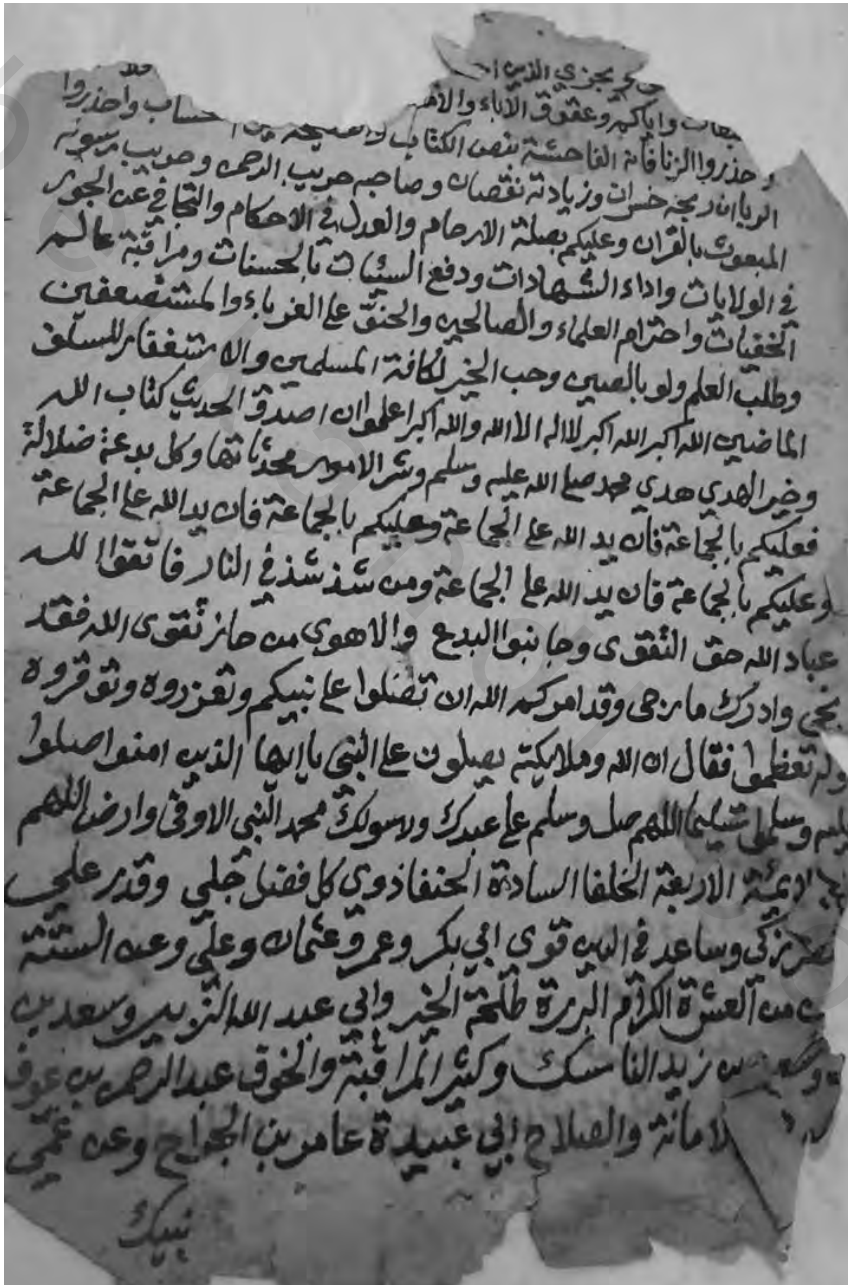 يجزي الذين
واياكم وعقوق الآباء والامه
واحذروا الزنا فانه الفاحشة بنص الكتاب الحساب واحذروا
الربا ان ربحه خسران وزيادته نقصان وصاحبه حريب الرحمن وحريب رسوله
المبعوث بالقران وعليكم بصلة الارحام والعدل في الاحكام والتجافي عن الجور
في الولايات واداء الشهادات ودفع السيئات بالحسنات ومراقبة عالم
الخفيات واحترام العلماء والصالحين والحنو على الغرباء والمستضعفين
وطلب العلم ولو بالصين وحب الخير لكافة المسلمين والاستغفار للسلف
الماضين الله اكبر الله اكبر لا اله الا الله والله اكبر اعلموا ان اصدق الحديث كتاب الله
وخير الهدي هدي محمد صلى الله عليه وسلم وشر الامور محدثاتها وكل بدعة ضلالة
فعليكم بالجماعة فان يد الله على الجماعة وعليكم بالجماعة فان يد الله على الجماعة
وعليكم بالجماعة فان يد الله على الجماعة ومن شذ شذ في النار فاتقوا الله
عباد الله حق التقوى وجانبوا البدع والاهوى من حاز تقوى الله فقد
نجى وادرك ما رجى وقد امركم الله ان تصلوا على نبيكم وتعزروه وتوقروه
وله تعظموا فقال ان الله وملايكته يصلون على النبي ياايها الذين امنوا صلوا
عليه وسلموا تسليما اللهم صل وسلم على عبدك ورسولك محمد النبي الاوفى وارض اللهم
عن الايمة الاربعة الخلفا السادة الحنفا ذوي كل فضل جلي وقدر علي
زكي وساعد في الدين قوى ابي بكر وعمر وعثمان وعلي وعن الستة
من العشرة الكرام البررة طلحة الخير وابي عبد الله الزبير وسعد بن
بن زيد الناسك وكثير المراقبة والخوف عبد الرحمن بن عوف
الامانة والصلاح ابي عبيدة عامر بن الجراح وعن عمي
نبيك